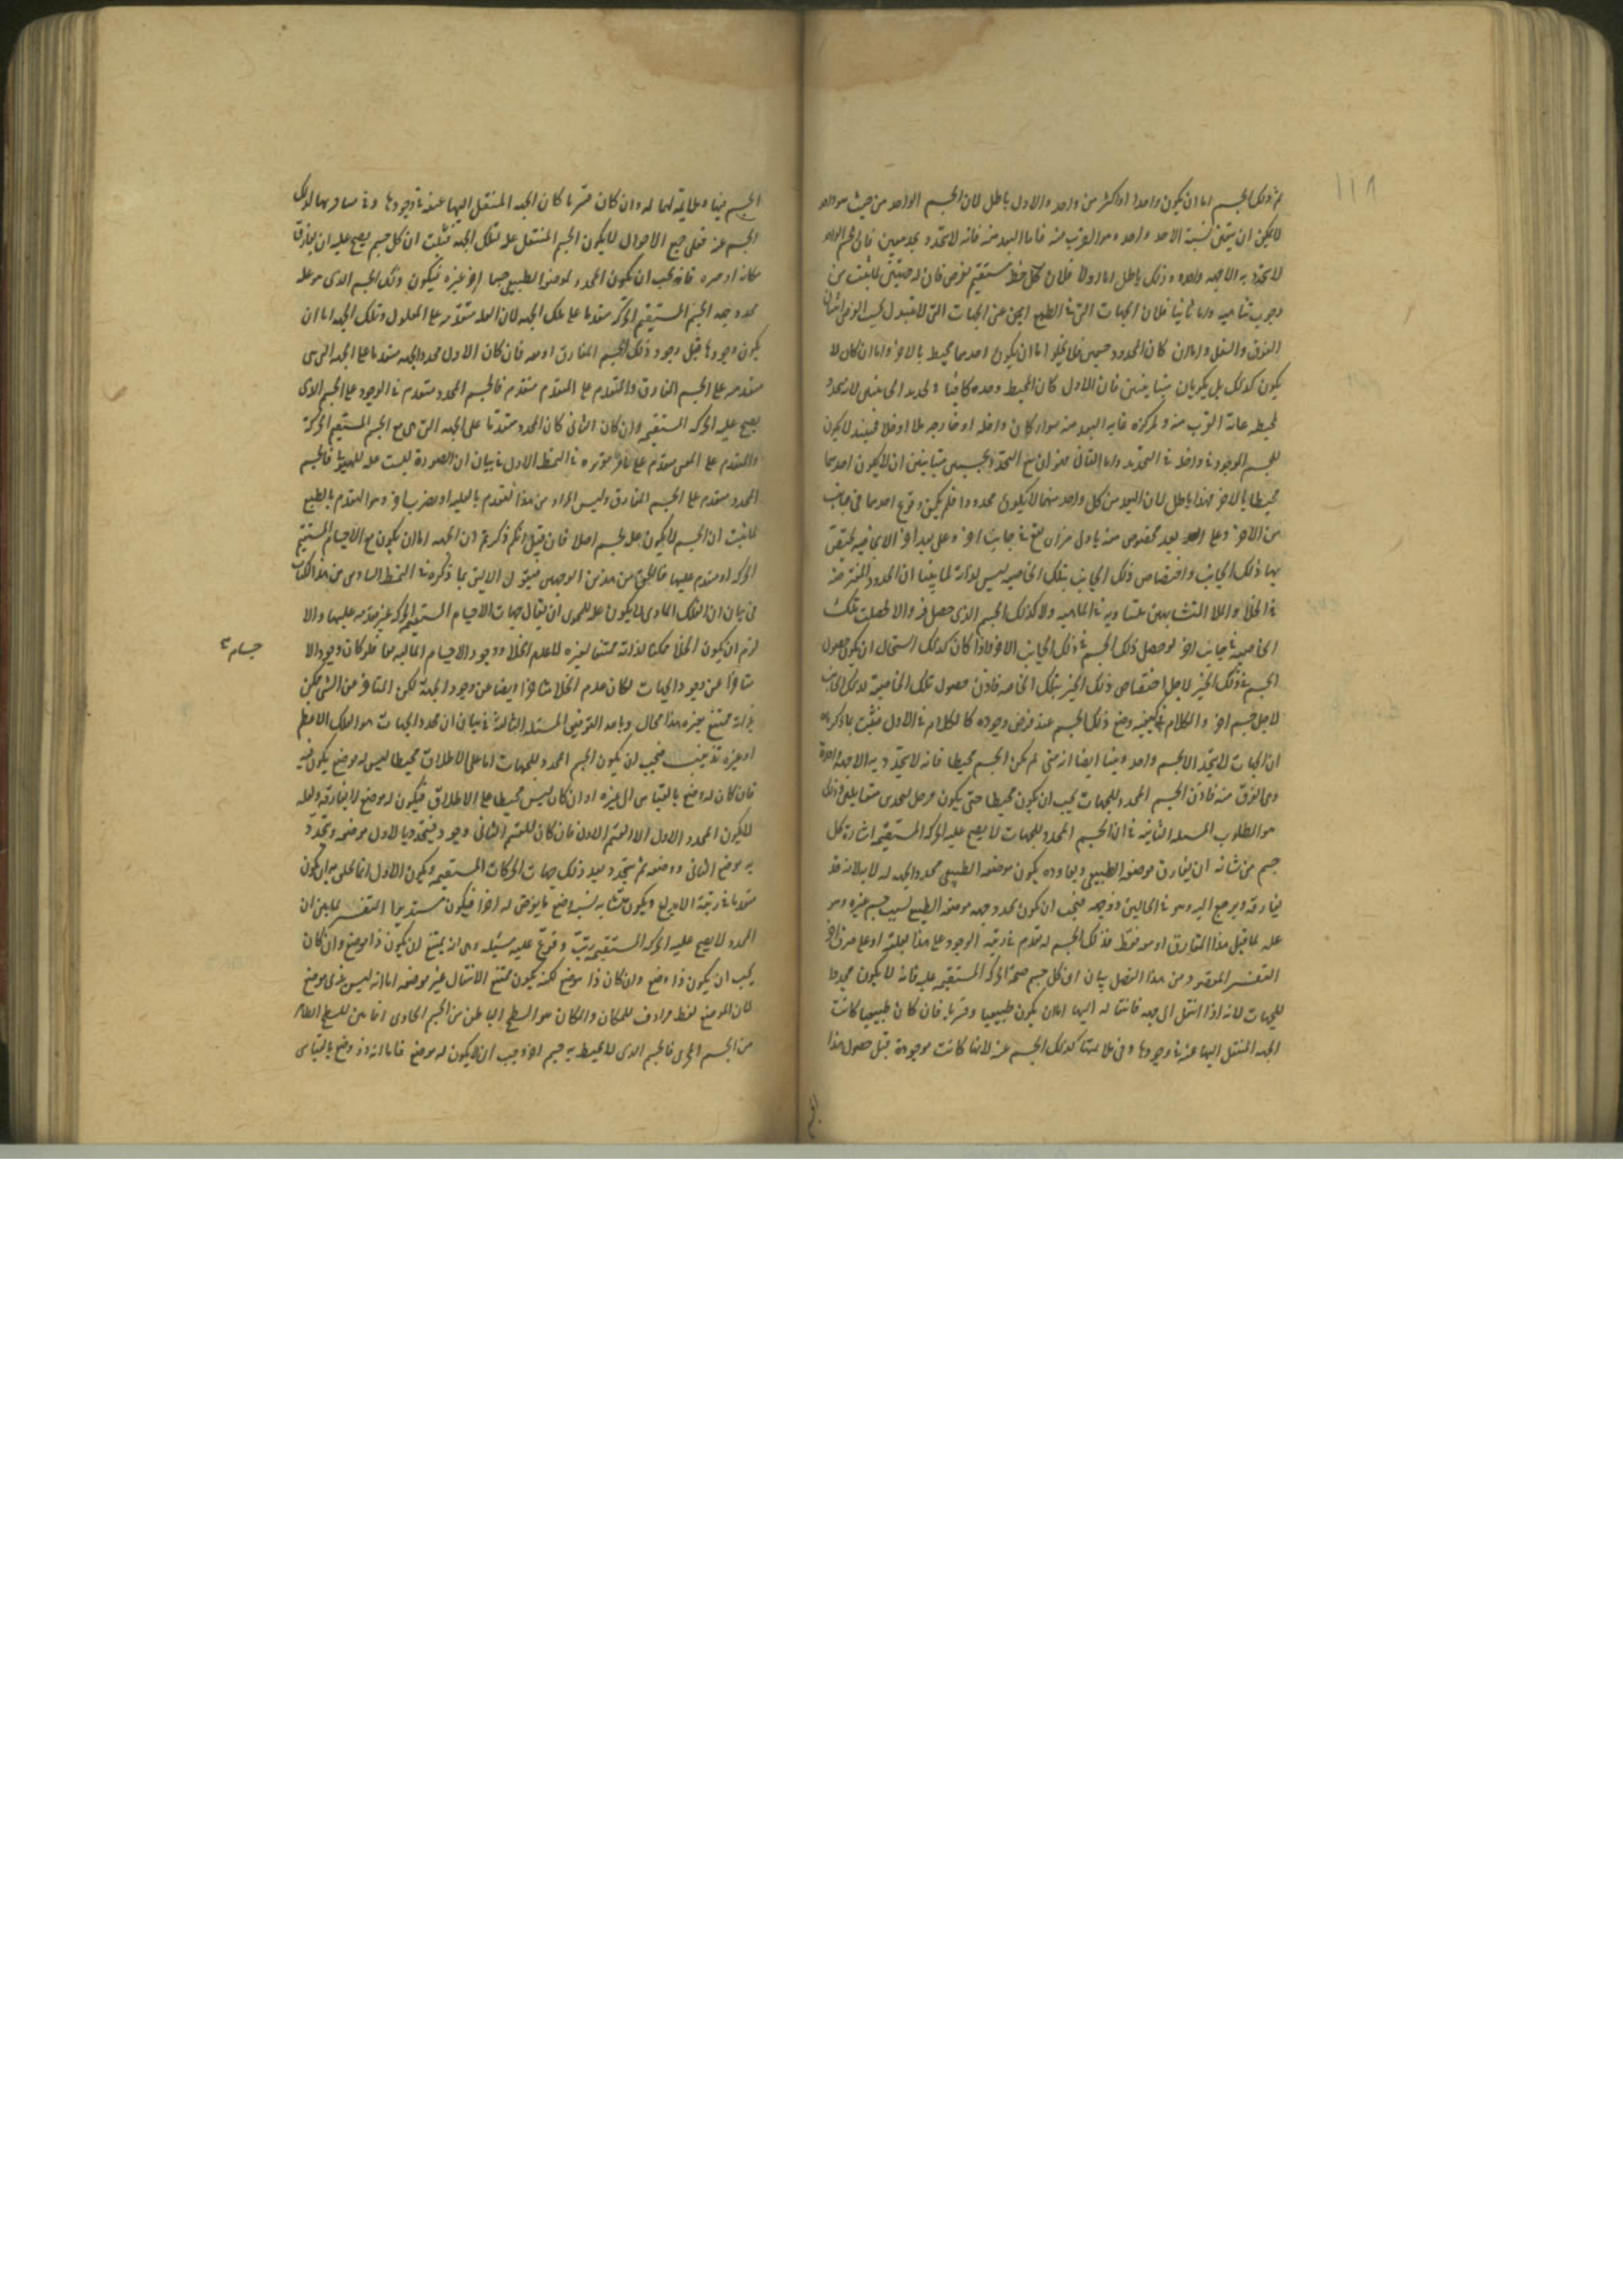 ١١٨
ثم ذلك الجسم اما ان يكون واحدا او اكثر من واحد والاول باطل لان الجسم الواحد من حيث هو واحد
لا يمكن ان يتعين نسبة الا حد واحد وهو القرب منه فاما البعد منه فانه لا يتحدد به حد معين فاذن الجسم الواحد
لا يتحدد به الا جهة واحدة وذلك باطل اما اولا فلان كل خط مستقيم يفرض فان له جهتين لما ثبت من
وجوب تناهيه واما ثانيا فلان الجهات التي في الطبع اعني الجهات التي لا تتبدل بحسب الفرض اثنان
الفوق والسفل واما ان كان المحدد جسمين فلا يخلو اما ان يكون احدهما محيط بالاخر واما ان كان لا
يكون كذلك بل يكونان متباينين فان الاول كان المحيط وحده كافيا في تحديد الجهتين لانه يتحدد
بمحيطه غاية القرب منه و بمركزه غاية البعد منه سواء كان داخله او خارجه ملا او خلا فحينئذ لا يكون
للجسم الموجود في داخله في التحديد واما الثاني فهو ان يقع التحدد بجسمين متباينين ان لا يكون احدهما
محيطا بالاخر فهذا باطل لان البعد من كل واحد منهما لا يكون محدودا فلم يكن وقوع احدهما في جانب
من الاخر وعلى بعد مخصوص منه باولى من ان يقع في جانب اخر وعلى بعد اخر الا لخاصية يختص
بها ذلك الجانب واختصاص ذلك الجانب بتلك الخاصية ليس لذاته لما بينا ان الحدود المفترضة
في الخلا والملا المتشابهين متساوية في الماهية ولا كذلك الجسم الذي حصل فيه والا لحصلت تلك
الخاصية في جانب اخر لو حصل ذلك الجسم في ذلك الجانب الاخر واذا كان كذلك استحال ان يكون حصول
الجسم في ذلك الحيز لاجل اختصاص ذلك الحيز بتلك الخاصية فاذن حصول تلك الخاصية لذلك الجانب
لاجل جسم اخر والكلام في كيفية وضع ذلك الجسم عند فرض وجوده كالكلام في الاول فثبت بما ذكرناه
ان الجهات لا تتحدد الا بجسم واحد وبينا ايضا انه متى لم يكن الجسم محيطا فانه لا يتحدد به الا جهة واحدة
وهي القرب منه فاذن الجسم المحدد للجهات يجب ان يكون محيطا حتى يكون محددا لحدين متقابلين وذلك
هو المطلوب المسئلة الثانية في ان الجسم المحدد للجهات لا يصح عليه الحركة المستقيمة اشارة كل
جسم من شانه ان يفارق موضعه الطبيعي ويعاوده يكون موضعه الطبيعي محدد الجهة له لا به لانه قد
يفارقه ويرجع اليه وهو في الحالين ذو جهة فيجب ان يكون تحدد جهة موضعه الطبيعي بسبب جسم غيره وهو
علة لما قبل هذا المفارق او معه فقط فذلك الجسم له تقدم في رتبة الوجود على هذا بعلية او على ضرب اخر
التفسير المقصود من هذا الفصل بيان ان كل جسم صحت الحركة المستقيمة عليه فانه لا يكون محددا
للجهات لانه اذا انتقل الى جهة فانتقاله اليها اما ان يكون طبيعيا او قسريا فان كان طبيعيا كانت
الجهة المنتقل اليها غنية في وجودها وفي ملائمتها لذلك الجسم عنه لانها كانت موجودة قبل حصول هذا
الجسم فيها وملائمة لها له وان كان قسريا كان الجهة المنتقل اليها غنية في وجودها وفي منافرتها لذلك
الجسم عنه فعلى جميع الاحوال لا يكون الجسم المنتقل علة لتلك الجهة فثبت ان كل جسم يصح عليه ان يفارق
مكانه او حيزه فانه يجب ان يكون المحدد لموضعه الطبيعي جسما اخر غيره فيكون ذلك الجسم الذي هو علة
محدد جهة الجسم المستقيم الحركة متقدما على تلك الجهة لان العلة متقدمة على المعلول وتلك الجهة اما ان
يكون وجودها قبل وجود ذلك الجسم المفارق او معه فان كان الاول كان محدد الجهة متقدما على الجهة التي هي
متقدمة على الجسم المفارق والمتقدم على المتقدم متقدم فالجسم المحدد متقدم في الوجود على الجسم الذي
يصح عليه الحركة المستقيمة وان كان الثاني كان المحدد متقدما على الجهة التي هي مع الجسم المستقيم الحركة
والمتقدم على المع متقدم على ما قرره في النمط الاول في بيان ان الصورة ليست علة للهيولى فالجسم
المحدد متقدم على الجسم المفارق وليس المراد من هذا التقدم بالعلية او بضرب اخر وهو التقدم بالطبع
لما ثبت ان الجسم لا يكون علة لجسم اصلا فان قيل انكم ذكرتم ان الجهة اما ان يكون مع الاجسام المستقيمة
الحركة او متقدم عليها فما الحق من هذين الوجهين فنقول الاليق بما ذكره في النمط السادس من هذا الكتاب
في بيان ان الفلك الحاوي لا يكون علة للمحوي ان يقال جهات الاجسام المستقيمة الحركة غير متقدمة عليها والا
لزم ان يكون الخلا ممكنا لذاته ممتنعا لغيره لان عدم الخلا ووجود الاجسام المالية معا فلو كان وجود الا
جسام
متاخرا عن وجود الجهات لكان عدم الخلا متاخرا ايضا عن وجود الجهة لكن المتاخر عن الشي ممكن
لذاته ممتنع بغيره هذا محال وبالله التوفيق المسئلة الثالثة في بيان ان محدد الجهات هو الفلك الاعظم
او غيره تذنيب فيجب ان يكون الجسم المحدد للجهات اما على الاطلاق محيطا ليس له موضع يكون فيه
فان كان له وضع بالقياس الى غيره او ان كان ليس محيطا على الاطلاق فيكون له موضع لا يفارقه ولعله
لا يكون المحدد الاول الا القسم الاول فان كان للقسم الثاني وجود فيتحدد بالاول موضعه ويتحدد
به موضع الثاني ووضعه ثم يتحدد بعد ذلك جهات الحركات المستقيمة ويكون الاول اما
متقدما في رتبة الابداع ويكون متشابه نسبة وضع ما يفرض له اجزا فيكون مستديرا التفسير لما بين ان
المحدد لا يصح عليه الحركة المستقيمة رتب وفرع عليه مسئلة وهي انه يمتنع ان يكون ذا موضع وان كان
يجب ان يكون ذا وضع وان كان ذا موضع لكنه يكون ممتنع الانتقال عن موضعه اما انه ليس بذي موضع
لان الموضع لفظ مرادف للمكان والمكان هو السطح الباطن من الجسم الحاوي المماس للسطح الظاهر
من الجسم المحوي فالجسم الذي لا يحيط به جسم اخر وجب ان لا يكون له موضع فاما انه ذو وضع بالقياس